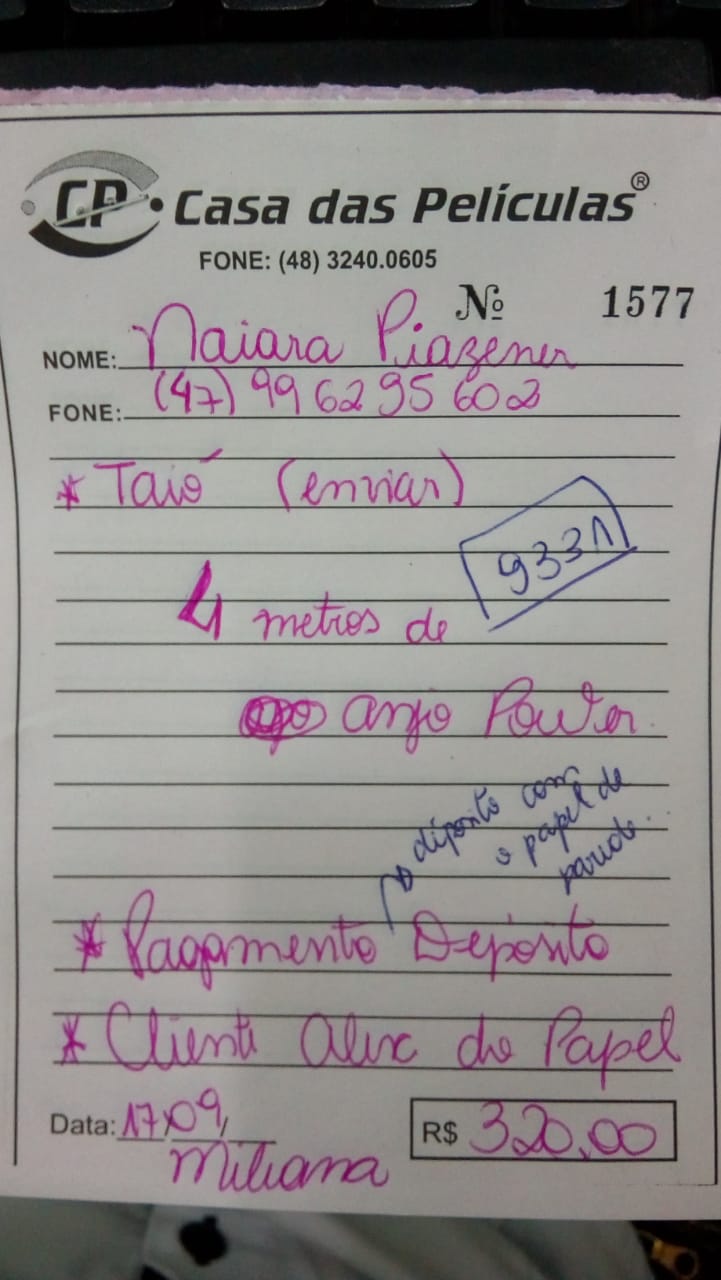 CP Casa das Películas®
FONE: (48) 3240.0605
Nº 1577
NOME: Naiara Piazener
FONE: (47) 996295602
* Taió (enviar)
9331
4 metros de
anjo Power
depósito com
o papel de
parede..
* Pagamento Depósito
* Cliente Alex do Papel
Data: 17/09/
R$ 320,00
Miliana